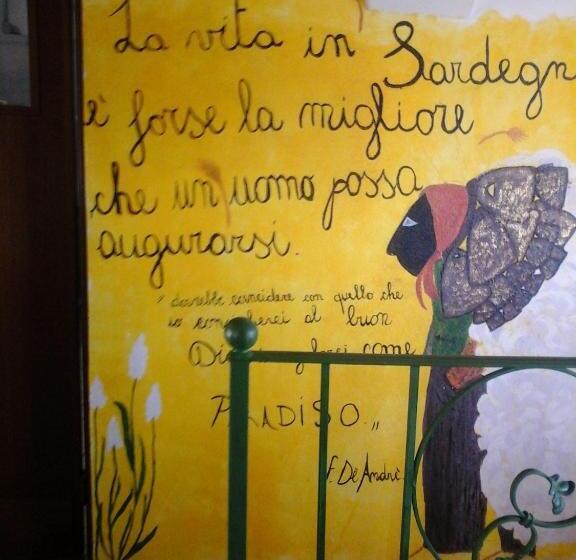 La vita in Sardegn
e' forse la migliore
che un uomo possa
augurarsi.
" dovrebbe coincidere con quello che
io al buon
come
"
F. De Andrè